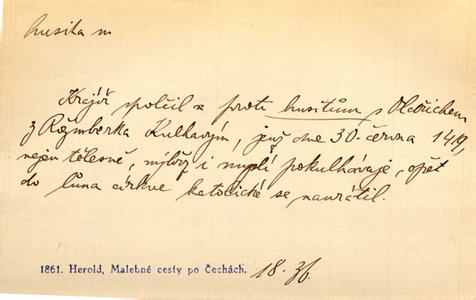 husita m
Krajíř spolčil se proti husitům s Oldřichem
z Rožmberka Kulhavým, jenž dne 30. června 1419,
nejen tělesně, nýbrž i myslí pokulhávaje, opět
do lůna církve katolické se navrátil.
1861. Herold, Malebné cesty po Čechách. 18. 36.